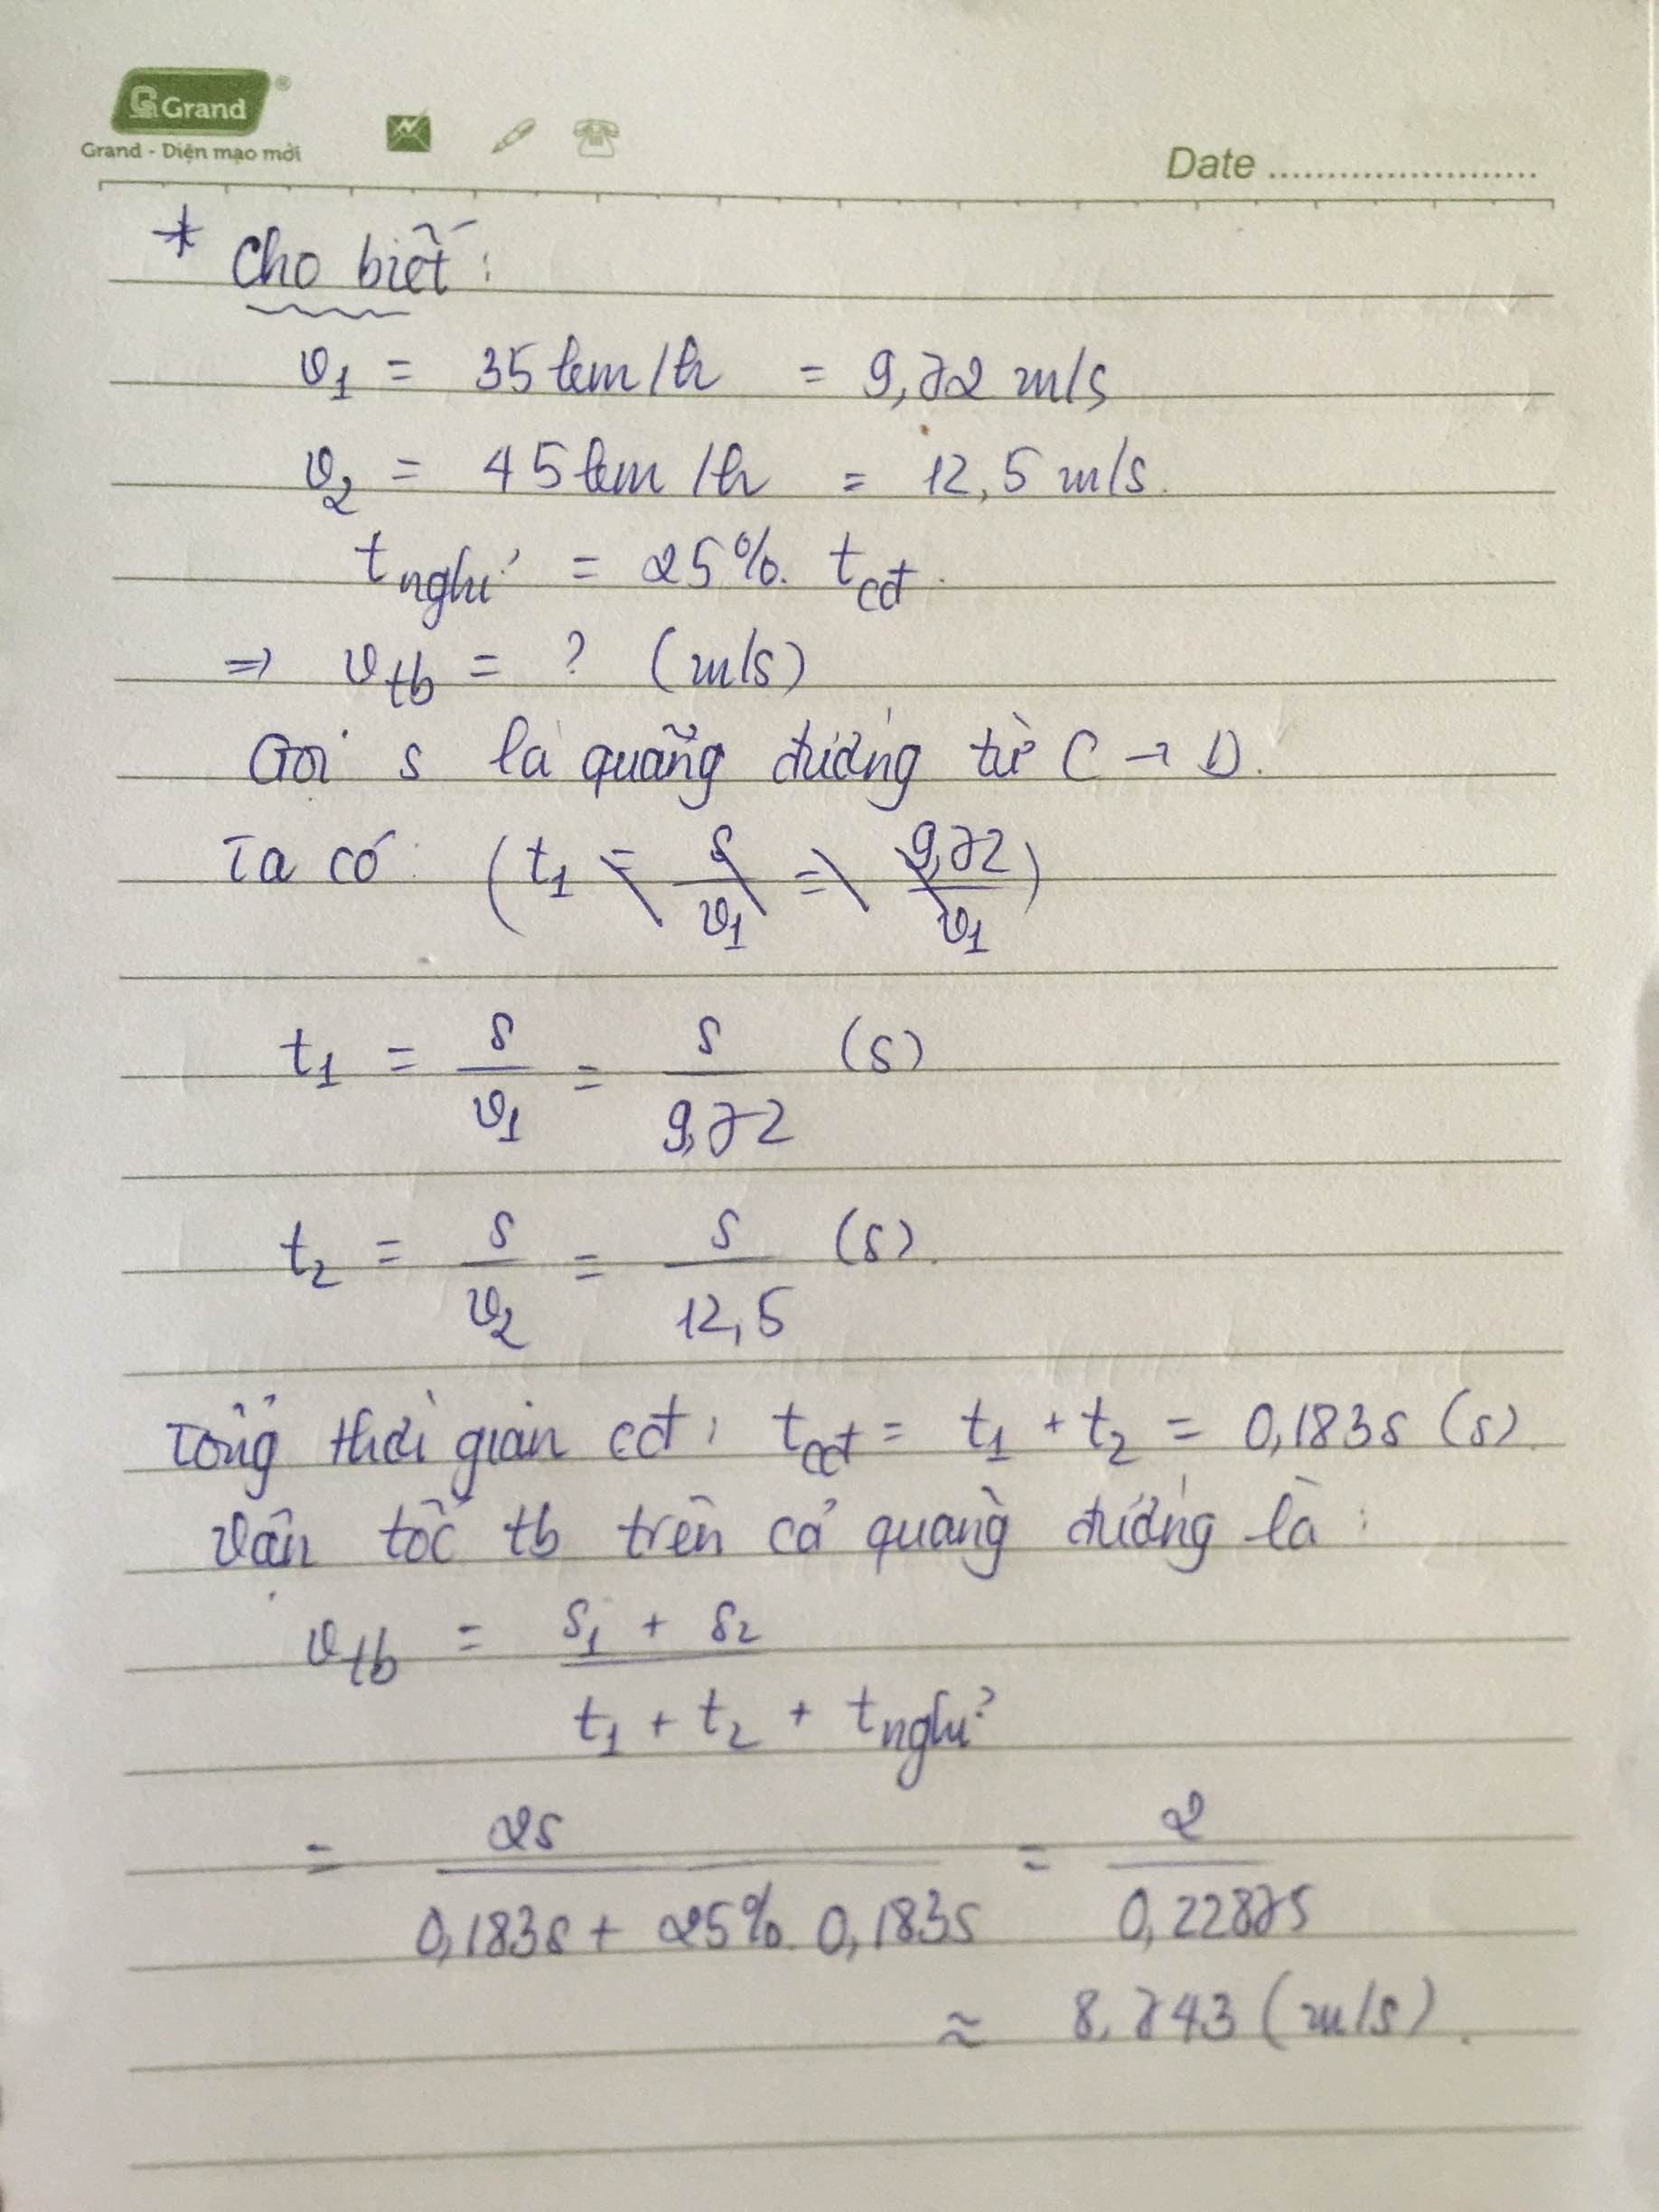 Grand
Grand - Diện mạo mới
Date
* Cho biết:
v1 = 35 km/h = 9,72 m/s
v2 = 45 km/h = 12,5 m/s.
t nghỉ = 25%. t cđ.
=> v tb = ? (m/s)
Gọi s là quãng đường từ C → D.
Ta có: (t1 = s/v1 = 9,72/v1)
t1 = s/v1 = s/9,72 (s)
t2 = s/v2 = s/12,5 (s).
Tổng thời gian cđ: t cđ = t1 + t2 = 0,183s (s).
Vận tốc tb trên cả quãng đường là:
v tb = s1 + s2 / t1 + t2 + t nghỉ
= 2s / 0,183s + 25%. 0,183s = 2 / 0,22875
≈ 8,743 (m/s).